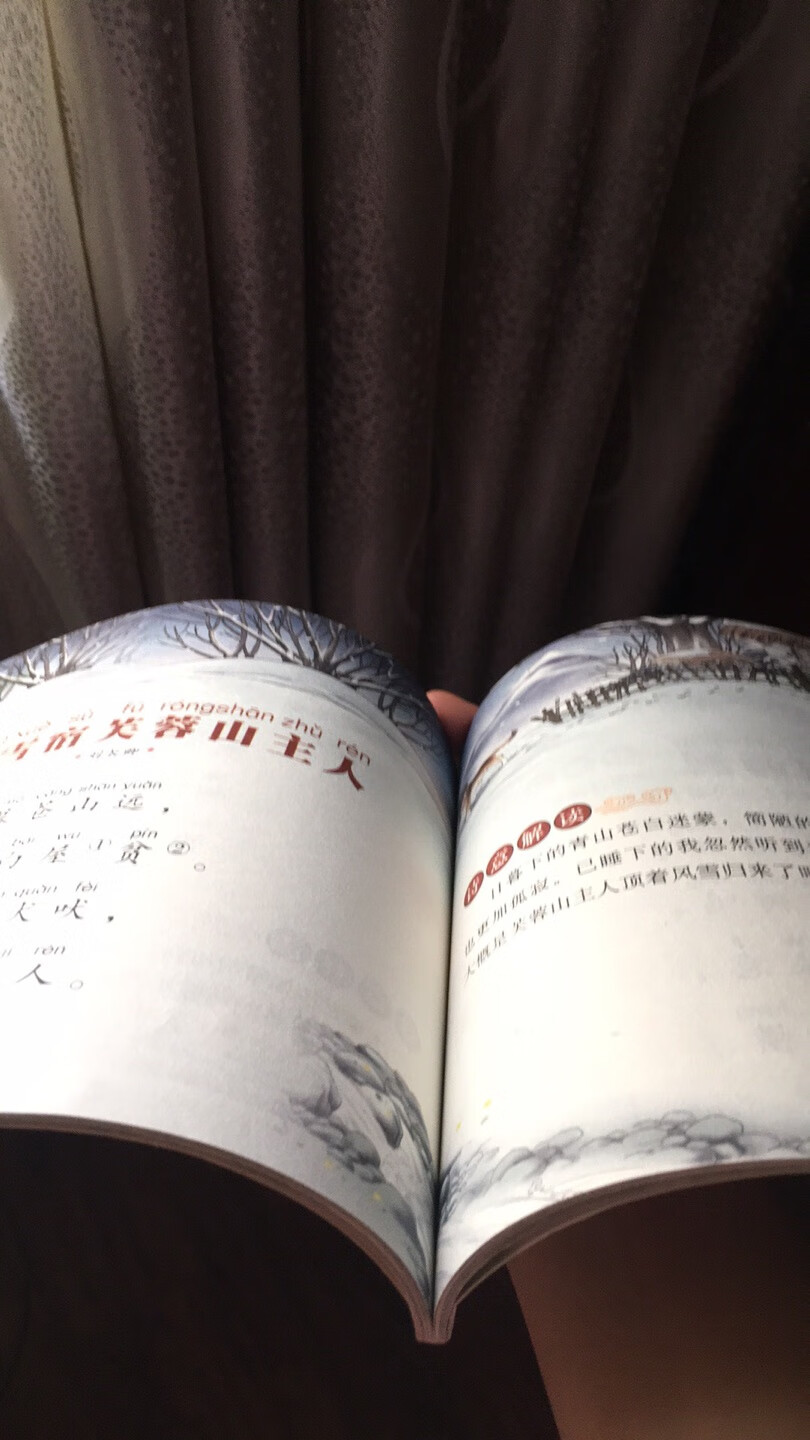 sù fú róngshān zhǔ rén
雪宿芙蓉山主人
cāng shān yuǎn
苍山远，
bái wū pín
屋贫②。
quǎn fèi
犬吠，
rén
人。
诗意解读
日暮下的青山苍白迷蒙，简陋的
也更加孤寂。已睡下的我忽然听到
大概是芙蓉山主人顶着风雪归来了